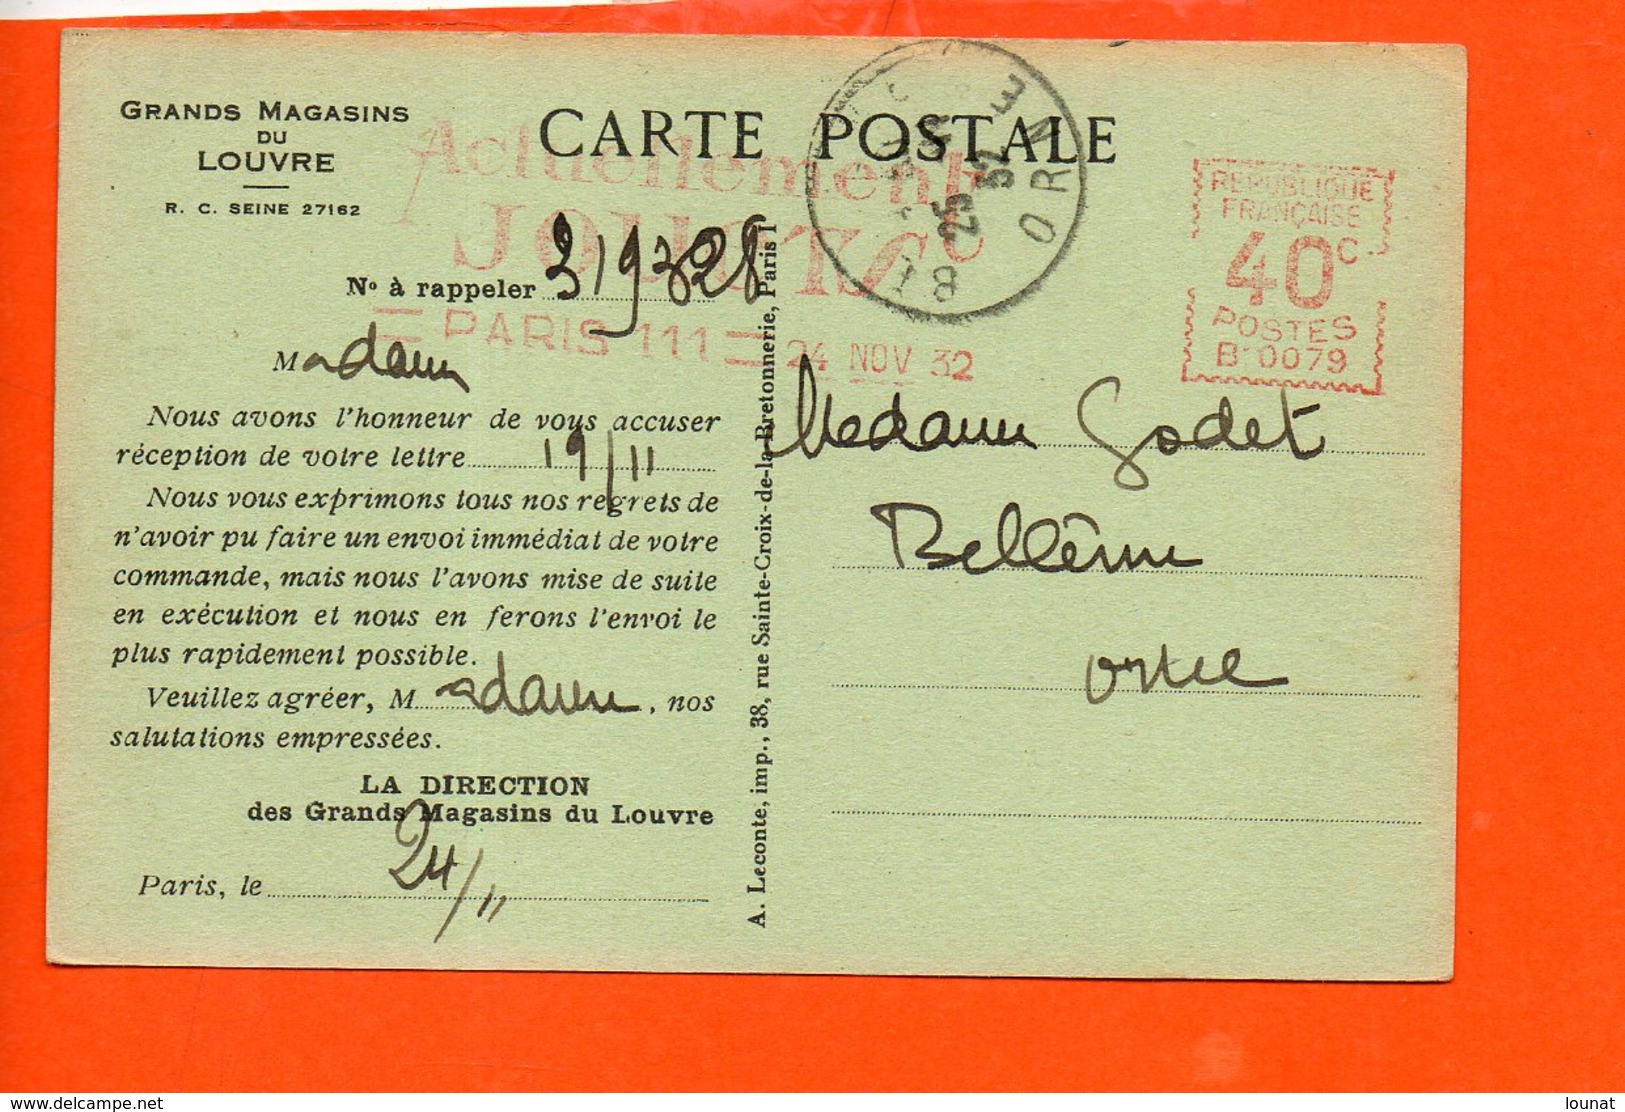 GRANDS MAGASINS
DU
LOUVRE
R. C. SEINE 27162
CARTE POSTALE
Actuellement
JOUETS
PARIS 111
24 NOV 32
ORNE
25
32
REPUBLIQUE
FRANÇAISE
40 C
POSTES
B 0079
No à rappeler 319328
Madame
Nous avons l'honneur de vous accuser
réception de votre lettre 19/11
Nous vous exprimons tous nos regrets de
n'avoir pu faire un envoi immédiat de votre
commande, mais nous l'avons mise de suite
en exécution et nous en ferons l'envoi le
plus rapidement possible.
Veuillez agréer, Madame, nos
salutations empressées.
LA DIRECTION
des Grands Magasins du Louvre
Paris, le 24/11
A. Leconte, imp., 38, rue Sainte-Croix-de-la-Bretonnerie, Paris
Madame Godet
Bellême
Orne
www.delcampe.net
lounat